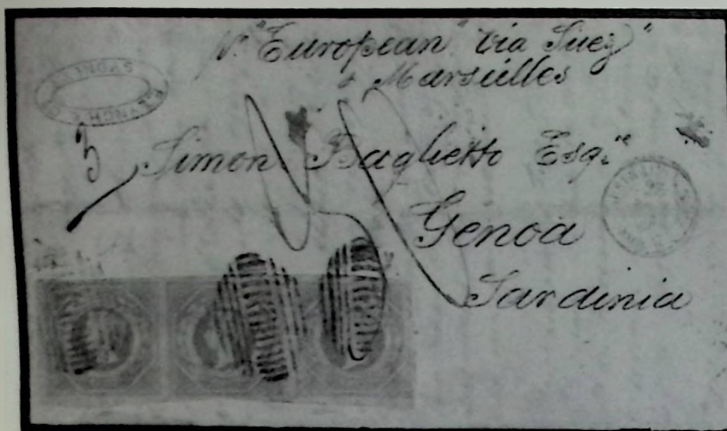 pr "European" via Suez
& Marseilles
SYDNEY
3
Simon Baglietto Esqr
Genoa
Sardinia